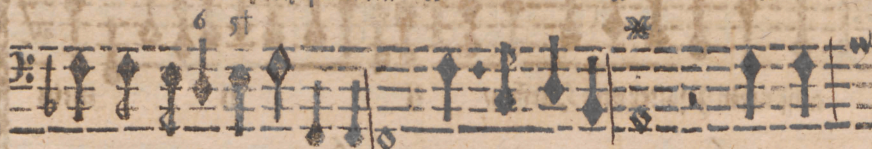 6 5†